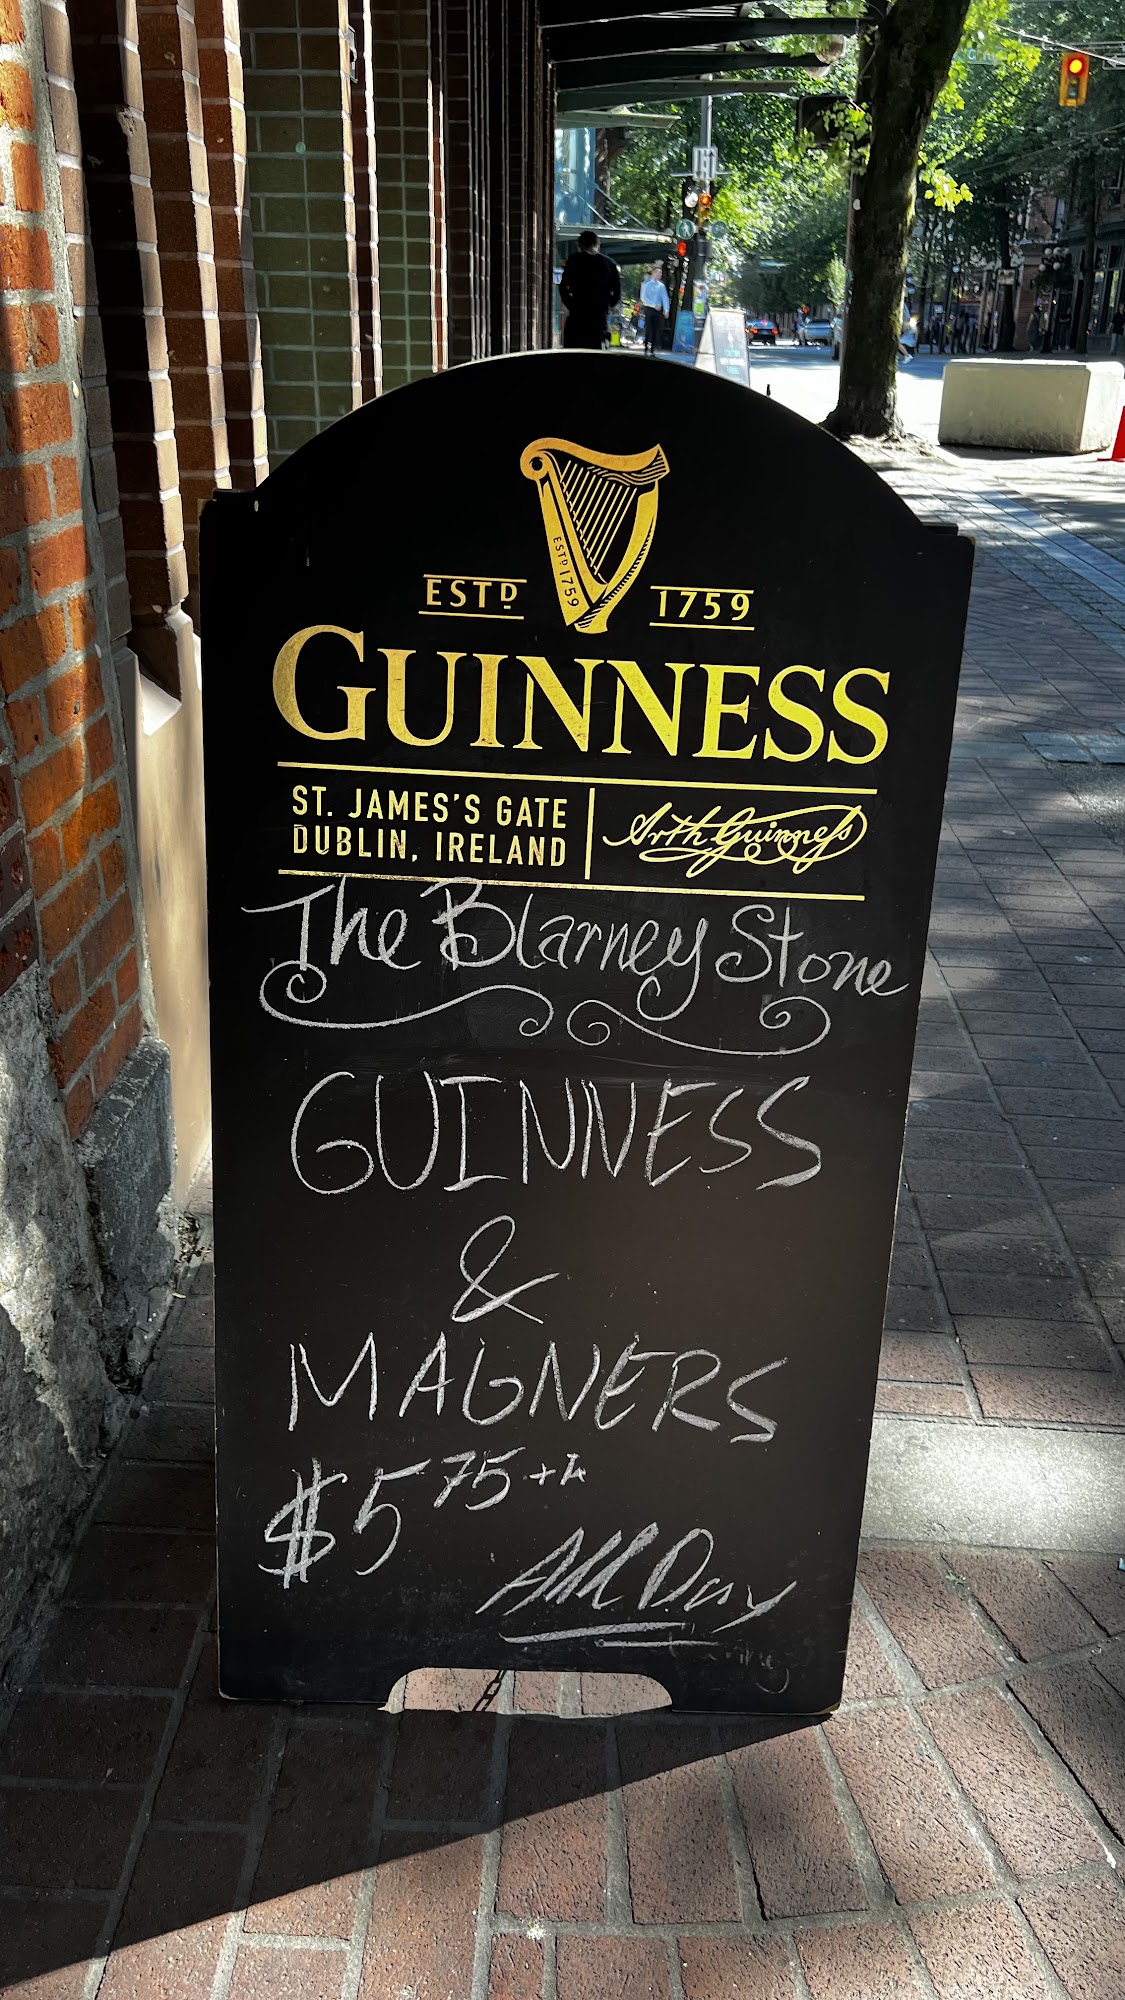 ESTD 1759
ESTD 1759
GUINNESS
ST. JAMES'S GATE
DUBLIN, IRELAND
Arth Guinness
The Blarney Stone
GUINNESS
&
MAGNERS
$5 75 +
All Day